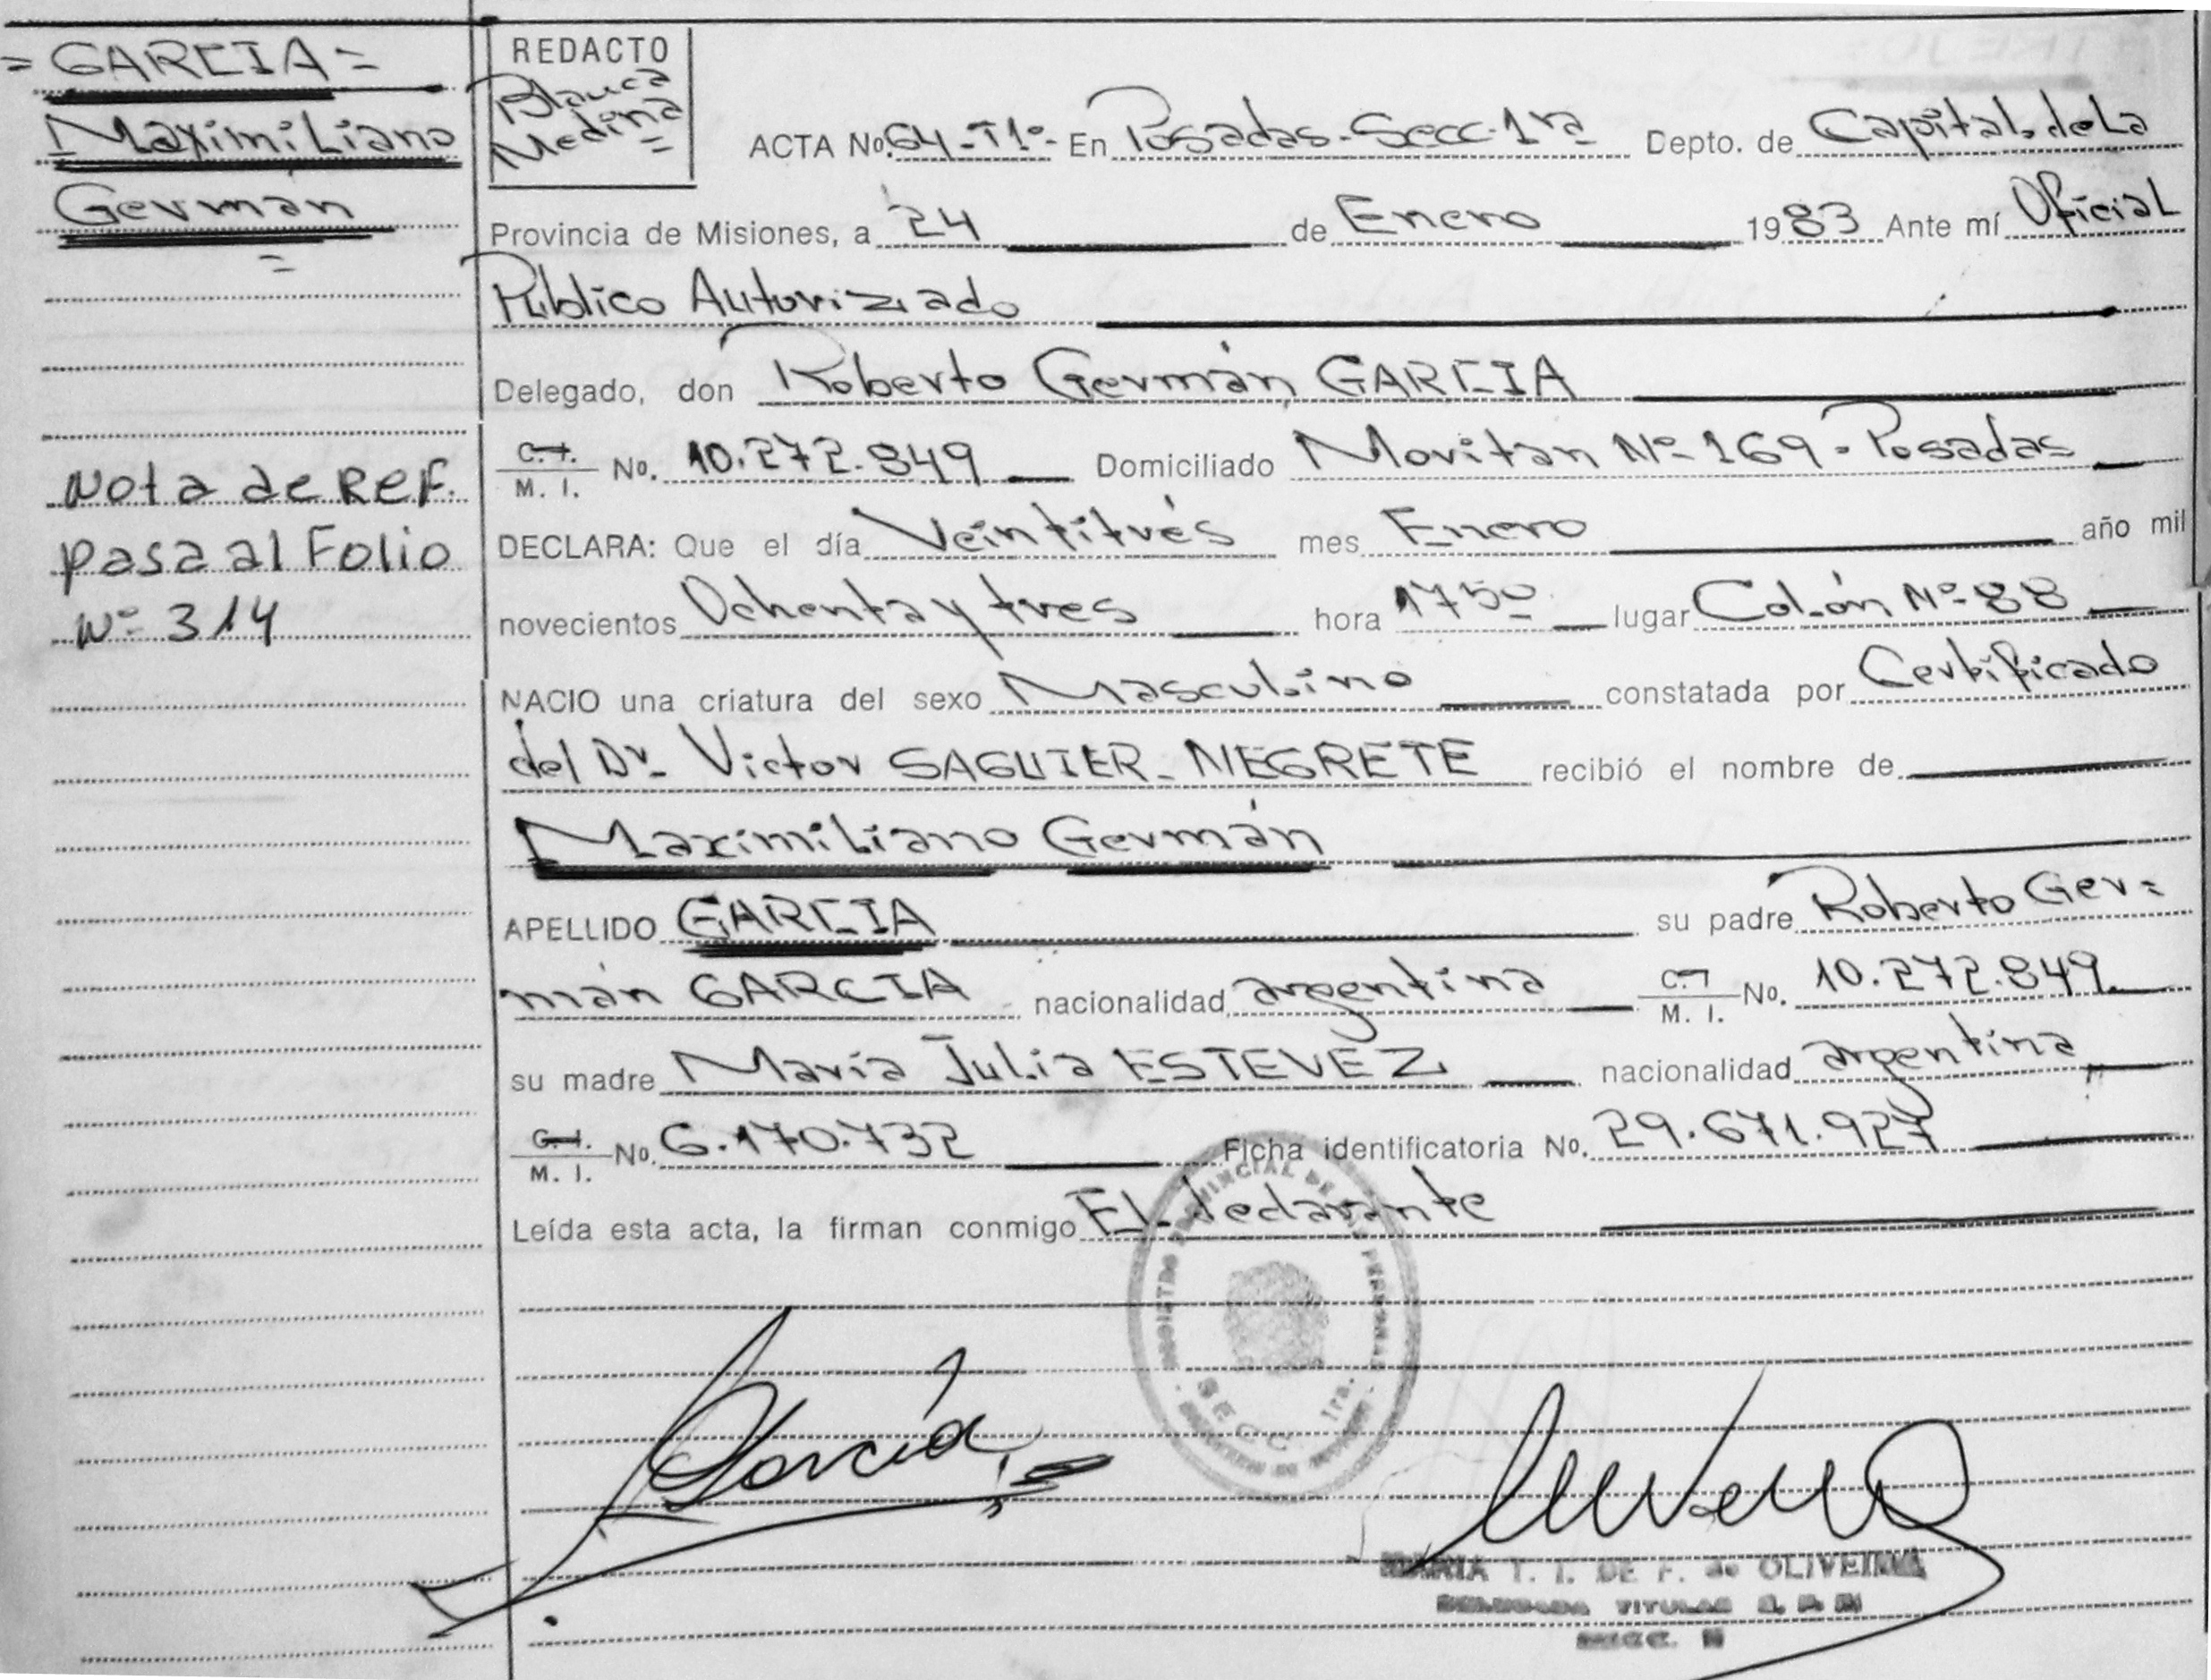 = GARCIA =
Maximiliano
Germán
=
Nota de REF.
pasa al Folio
Nº 314
REDACTO
Blanca
Medina
=
ACTA Nº 64-Tº1º- En Posadas-Secc-1ra Depto. de Capital de La
Provincia de Misiones, a 24 de Enero 1983 Ante mí Oficial
Público Autorizado
Delegado, don Roberto Germán GARCIA
C. I. / M. I. No. 10.272.849 Domiciliado Moritan Nº 169 - Posadas
DECLARA: Que el día Veintitrés mes Enero año mil
novecientos Ochenta y tres hora 1750 lugar Colón Nº 88
NACIO una criatura del sexo Masculino constatada por Certificado
del Dr. Victor SAGUIER-NEGRETE recibió el nombre de
Maximiliano Germán
APELLIDO GARCIA su padre Roberto Ger=
mán GARCIA nacionalidad argentina C. I. / M. I. No. 10.272.849
su madre María Julia ESTEVEZ nacionalidad argentina
C. I. / M. I. No. 6.170.732 Ficha identificatoria No. 29.671.927
Leída esta acta, la firman conmigo El declarante
REGISTRO PROVINCIAL DE LAS PERSONAS
SECC. 1ra.
García
MARIA T. I. DE F. de OLIVEIRA
DELEGADA TITULAR
SECC.